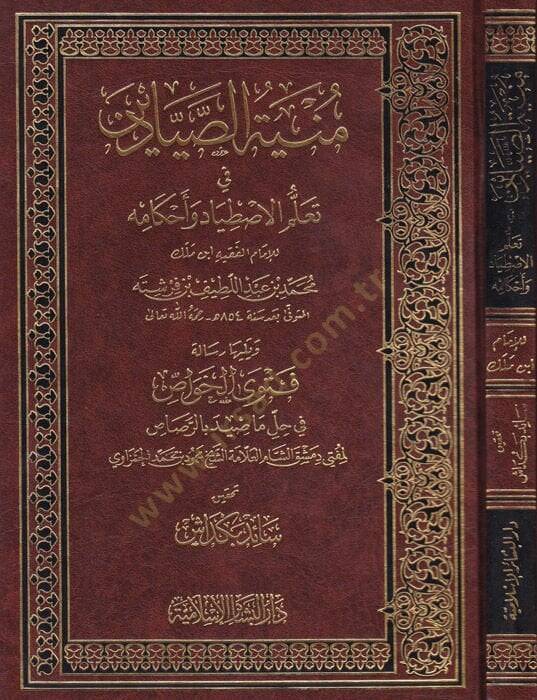 مُنْيَةُ الصَّيَّادِينَ
في
تَعَلُّمِ الاِصْطِيَادِ وَأَحْكَامِه
للإمام الفقيه ابن ملك
مُحَمَّد بْن عَبْد اللَّطِيف بْن فِرِشْتَه
المتوفى بعد سنة ٨٥٤هـ رحمه الله تعالى
ويليها رسالة
فَتْوَى الخَوَاصّ
في حِلّ مَا صِيدَ بِالرَّصَاص
لمفتي دمشق الشام العلامة الشيخ محمود بن محمد الحمزاوي
تحقيق
سائد بكداش
دار البشائر الإسلامية
منية الصيادين
في
تعلم
الاصطياد
وأحكامه
للإمام
ابن ملك
تحقيق
سائد بكداش
دار البشائر الإسلامية